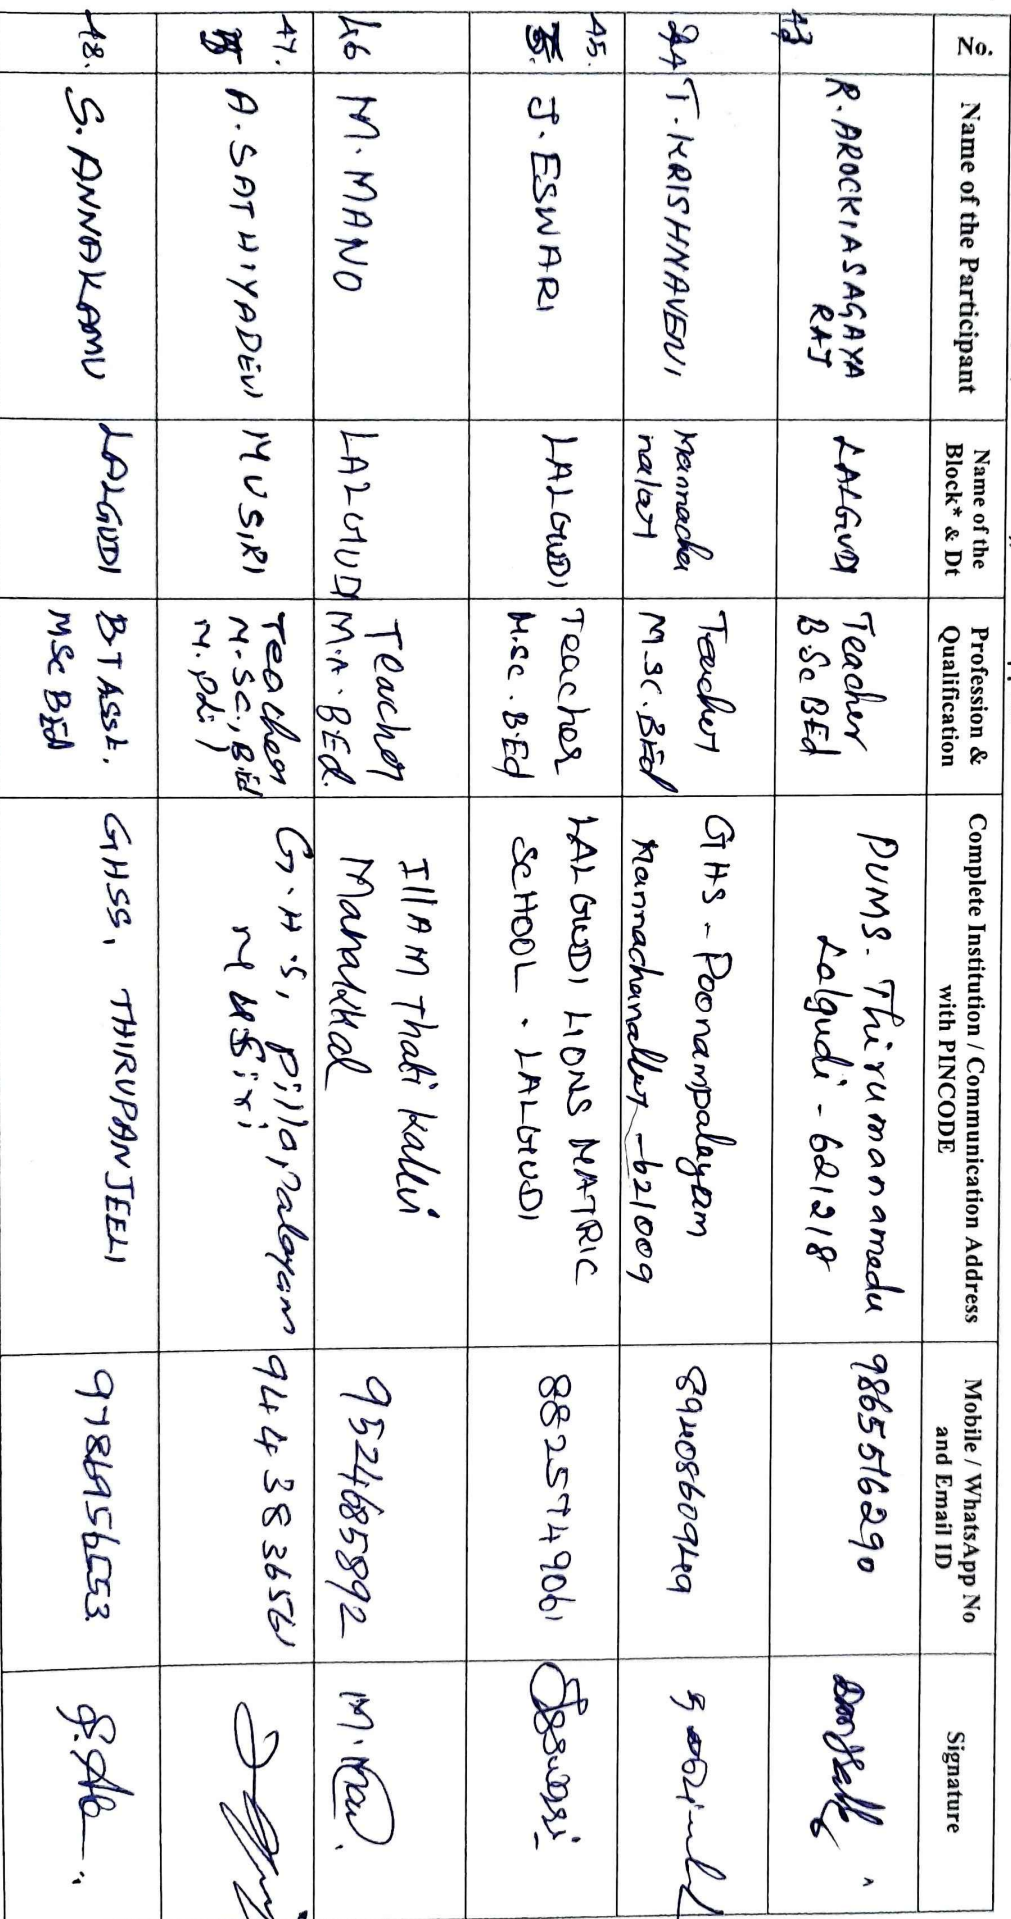 No.
Name of the Participant
Name of the
Block* & Dt
Profession &
Qualification
Complete Institution / Communication Address
with PINCODE
Mobile / WhatsApp No
and Email ID
Signature
43
R. AROCKIASAGAYA
RAJ
LALGUDI
Teacher
B.Sc BEd
PUMS. Thirumanamedu
Lalgudi - 621218
9865516290
44
T. KRISHNAVENI
Mannacha
nalor
Teacher
M.SC. BEd
GHS - Poonampalayam
Mannachanallur - 621009
8940860949
45.
J. ESWARI
LALGUDI
Teacher
M.SC. B.Ed
LALGUDI LIONS MATRIC
SCHOOL . LALGUDI
8825749061
Eswari
46
M. MANO
LALGUDI
Teacher
M.A. BEd.
IllAM Thati Kallvi
Manakkal
9524685892
M. Mano
47.
A. SATHIYADEVI
MUSIRI
Teacher
M.SC, B.Ed
G.H.S, Pillapalayam
Musiri
9443836561
48.
S. ANNAKAMU
LALGUDI
BT ASST.
MSc BEd
GHSS, THIRUPANJEELI
9786956553